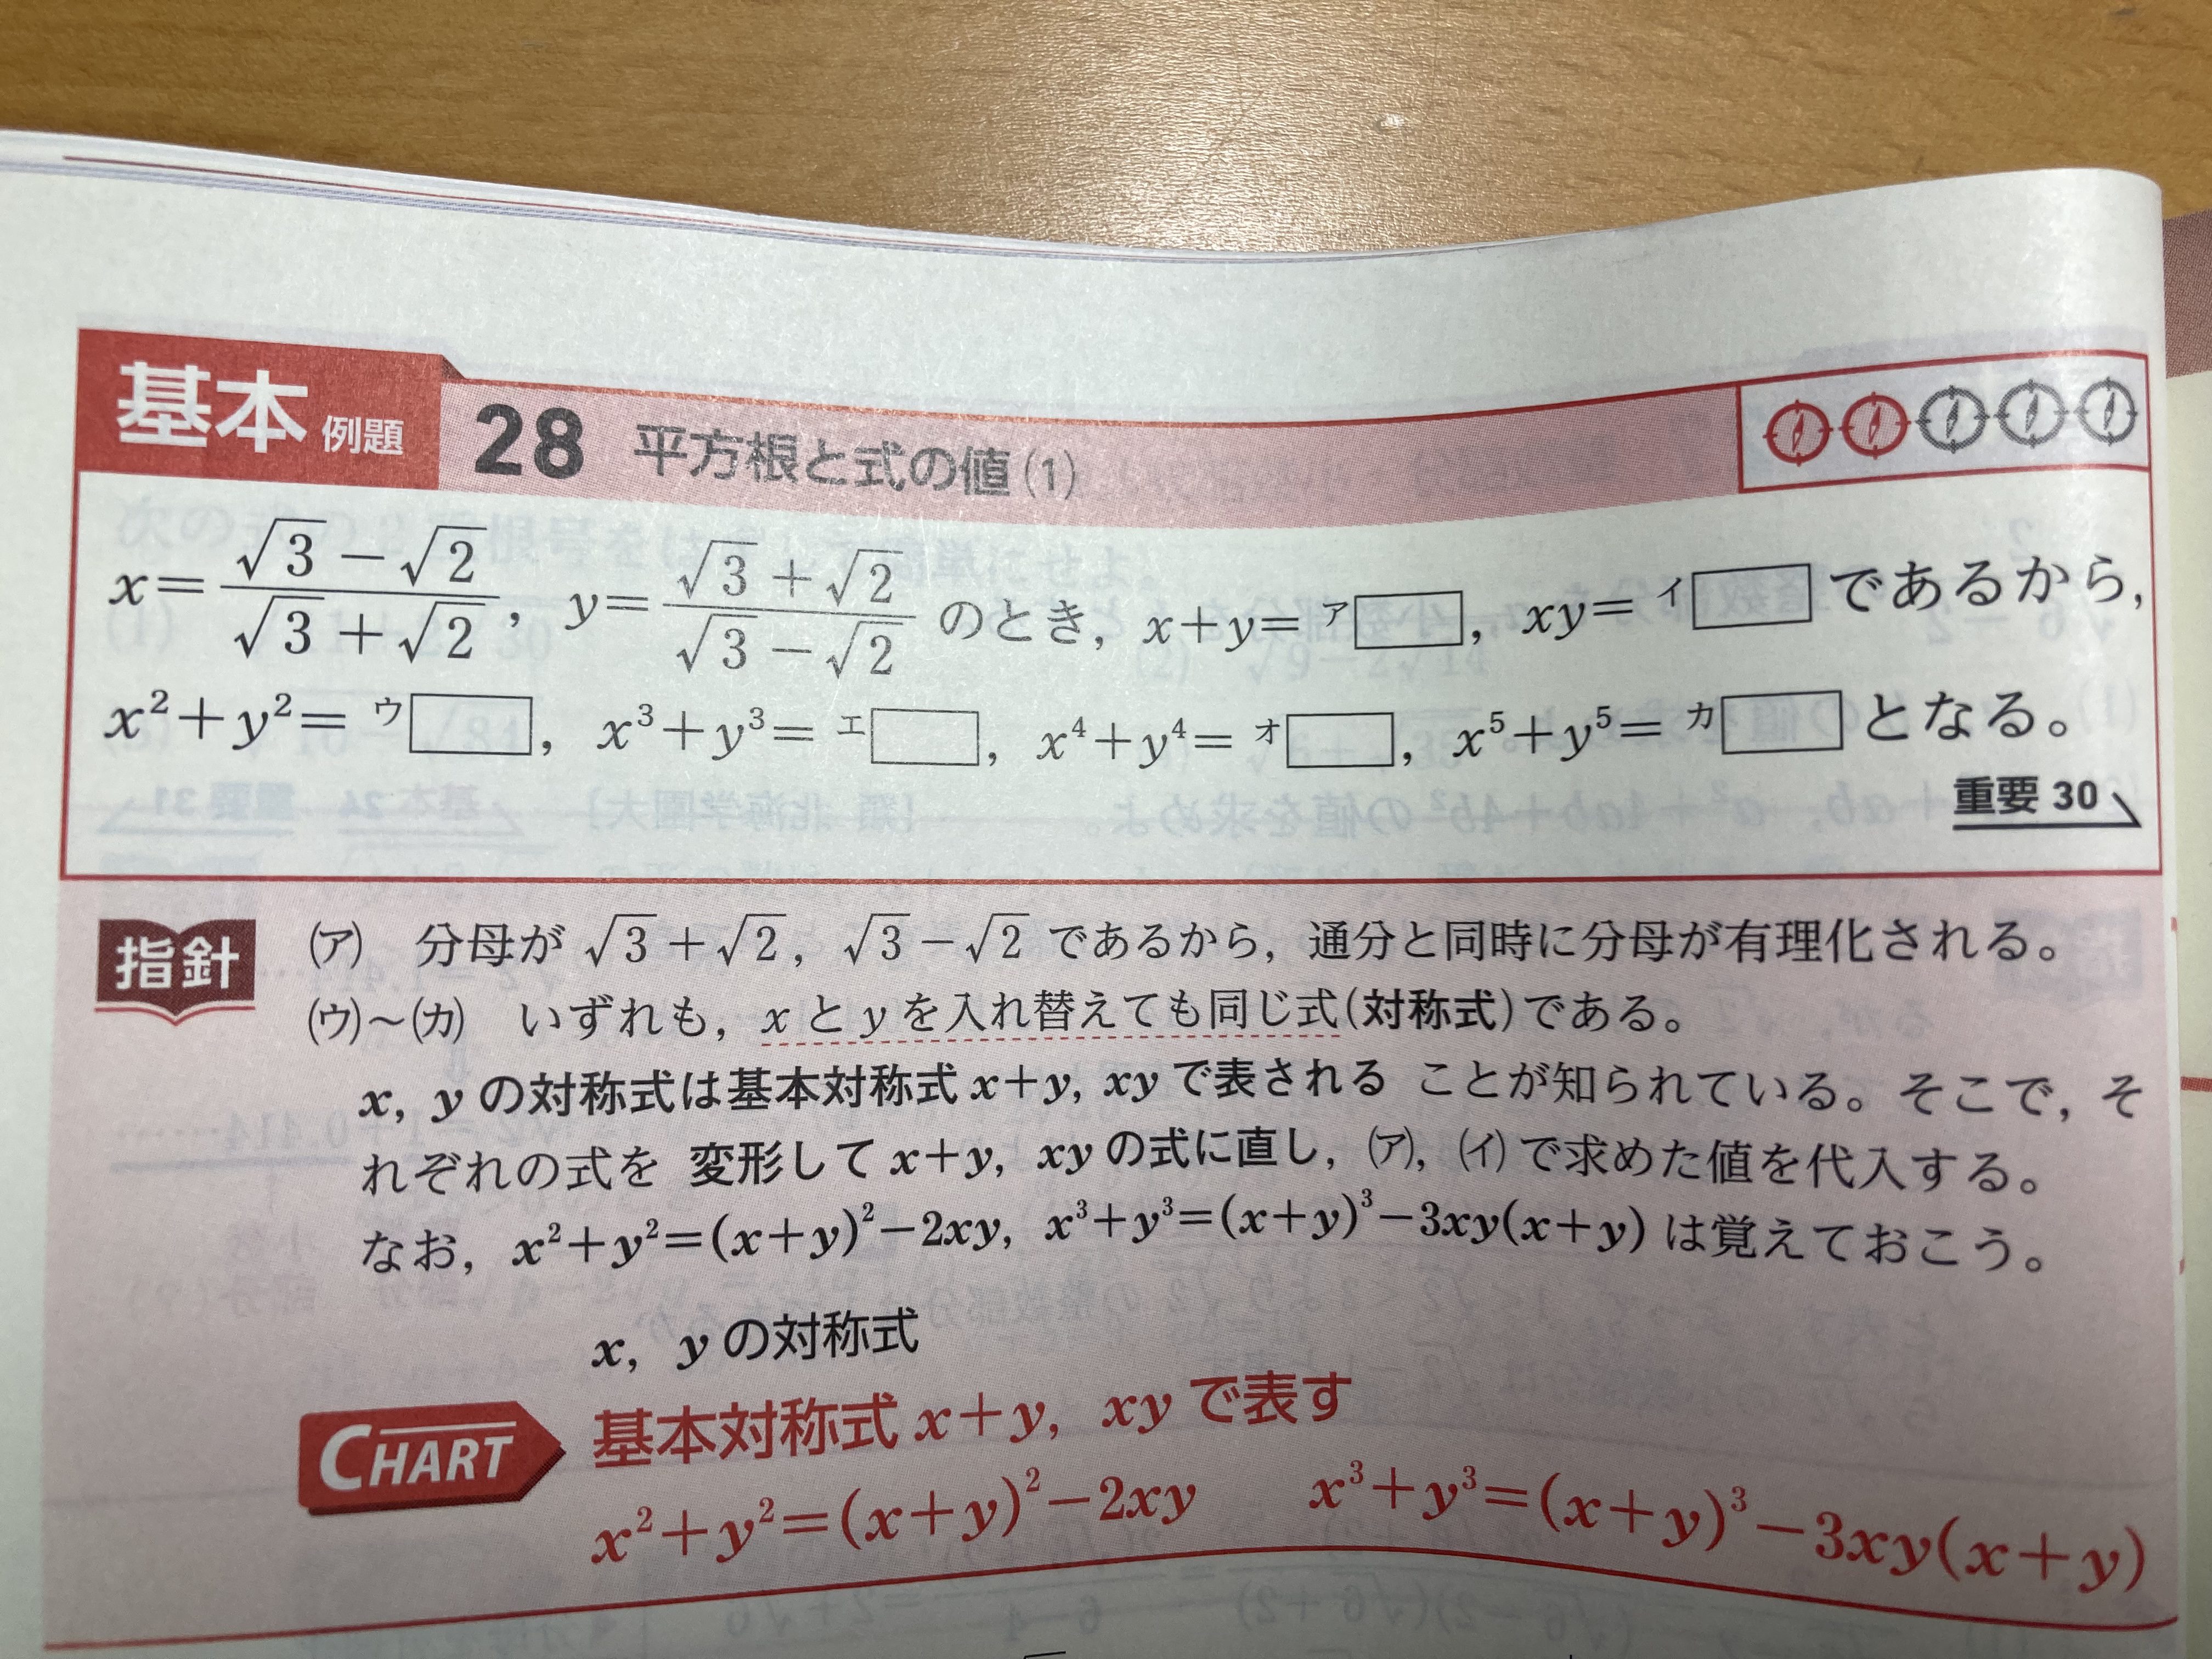 基本 例題 28 平方根と式の値(1)
x=(√3−√2)/(√3+√2), y=(√3+√2)/(√3−√2) のとき, x+y=ア□, xy=イ□ であるから,
x²+y²=ウ□, x³+y³=エ□, x⁴+y⁴=オ□, x⁵+y⁵=カ□ となる。
重要 30
指針 (ア) 分母が √3+√2, √3−√2 であるから, 通分と同時に分母が有理化される。
(ウ)~(カ) いずれも, x と y を入れ替えても同じ式(対称式)である。
x, y の対称式は基本対称式 x+y, xy で表される ことが知られている。そこで, そ
れぞれの式を 変形して x+y, xy の式に直し, (ア), (イ) で求めた値を代入する。
なお, x²+y²=(x+y)²−2xy, x³+y³=(x+y)³−3xy(x+y) は覚えておこう。
x, y の対称式
CHART 基本対称式 x+y, xy で表す
x²+y²=(x+y)²−2xy x³+y³=(x+y)³−3xy(x+y)